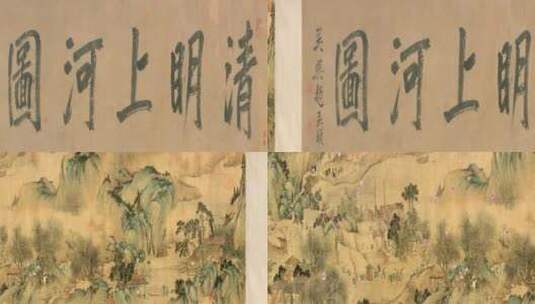 清明上河圖
明上河圖